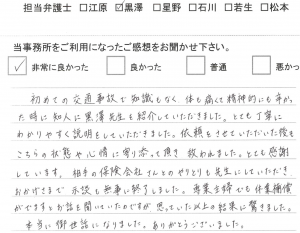 担当弁護士 □江原 ☑黒澤 □星野 □石川 □若生 □松本
当事務所をご利用になったご感想をお聞かせ下さい。
✓ 非常に良かった □ 良かった □ 普通 □ 悪かっ
初めての交通事故で知識もなく、体も痛くて精神的にも辛かっ
た時に知人に黒澤先生を紹介していただきました。とても丁寧に
わかりやすく説明をしていただきました。依頼をさせていただいた後も
こちらの状態や心情に寄り添って頂き救われました。とても感謝
しています。相手の保険会社さんとのやりとりも先生にしていただき、
おかげさまで示談も無事に終了しました。専業主婦でも休業補償
がでますとお話を聞いていたのですが思っていた以上の結果に驚きました。
本当に御世話になりました。ありがとうございました。